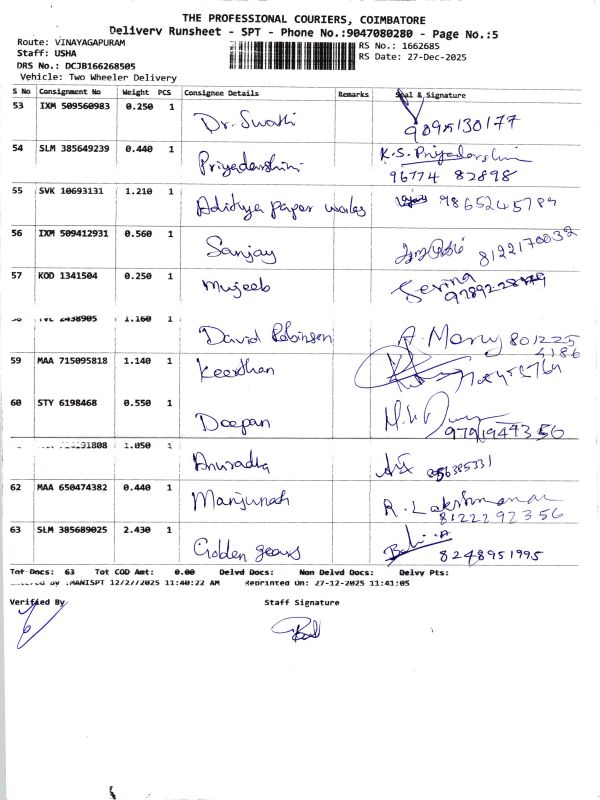 THE PROFESSIONAL COURIERS, COIMBATORE
Delivery Runsheet - SPT - Phone No.:9047080280 - Page No.:5
Route: VINAYAGAPURAM
RS No.: 1662685
Staff: USHA
RS Date: 27-Dec-2025
DRS No.: DCJB166268505
Vehicle: Two Wheeler Delivery
S No Consignment No Weight PCS Consignee Details Remarks Seal & Signature
53 IXM 509560983 0.250 1 Dr. Swathi
54 SLM 385649239 0.440 1 Priyadarshini K.S. Priyadarshini
96774 82898
55 SVK 10693131 1.210 1 Adithya paper wales 9865245789
56 IXM 509412931 0.560 1 Sanjay 8122170032
57 KOD 1341504 0.250 1 Mujeeb
2438905 1.160 1 David Robinson A. Mary 801225
4186
59 MAA 715095818 1.140 1 Keerthan
60 STY 6198468 0.550 1 Deepan
9791944356
1808 1.050 1 Anuradha
62 MAA 650474382 0.440 1 Manjunah R. Lakshmanan
8122292356
63 SLM 385689025 2.430 1 Golden gears
8248951995
Tot Docs: 63 Tot COD Amt: 0.00 Delvd Docs: Non Delvd Docs: Delvy Pts:
By :MANISPT 12/27/2025 11:40:22 AM Reprinted On: 27-12-2025 11:41:05
Verified By Staff Signature